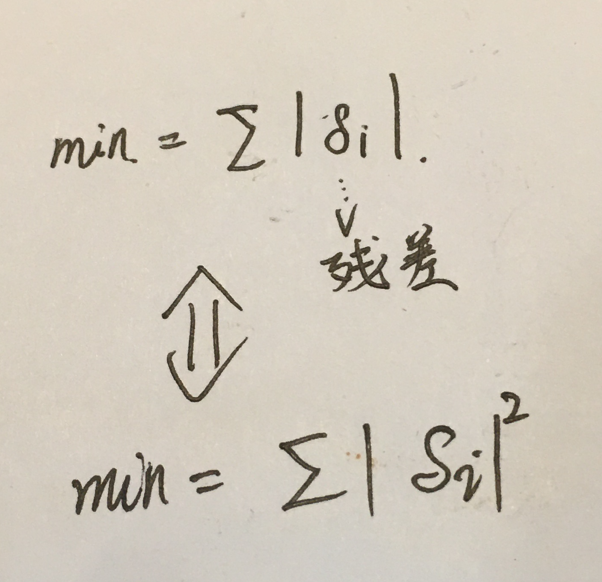 min = Σ |δi|.
残差
⇕
min = Σ | δi|²